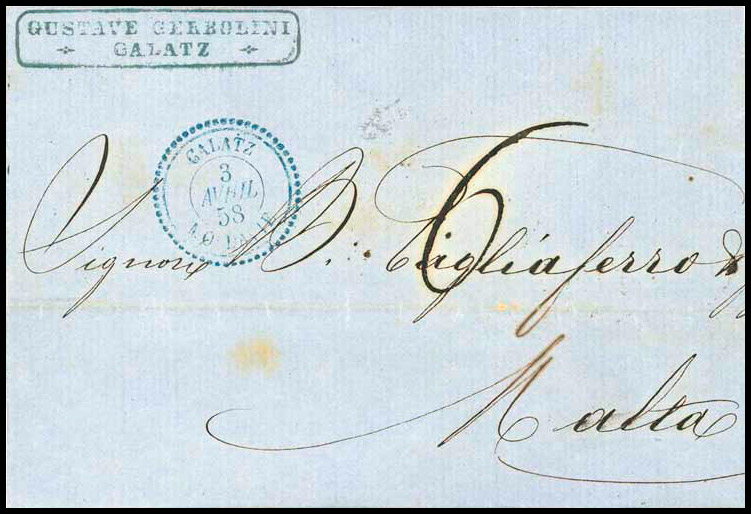 GUSTAVE GERBOLINI
GALATZ
GALATZ
3
AVRIL
58
6
Signori B. Tagliaferro
Malta